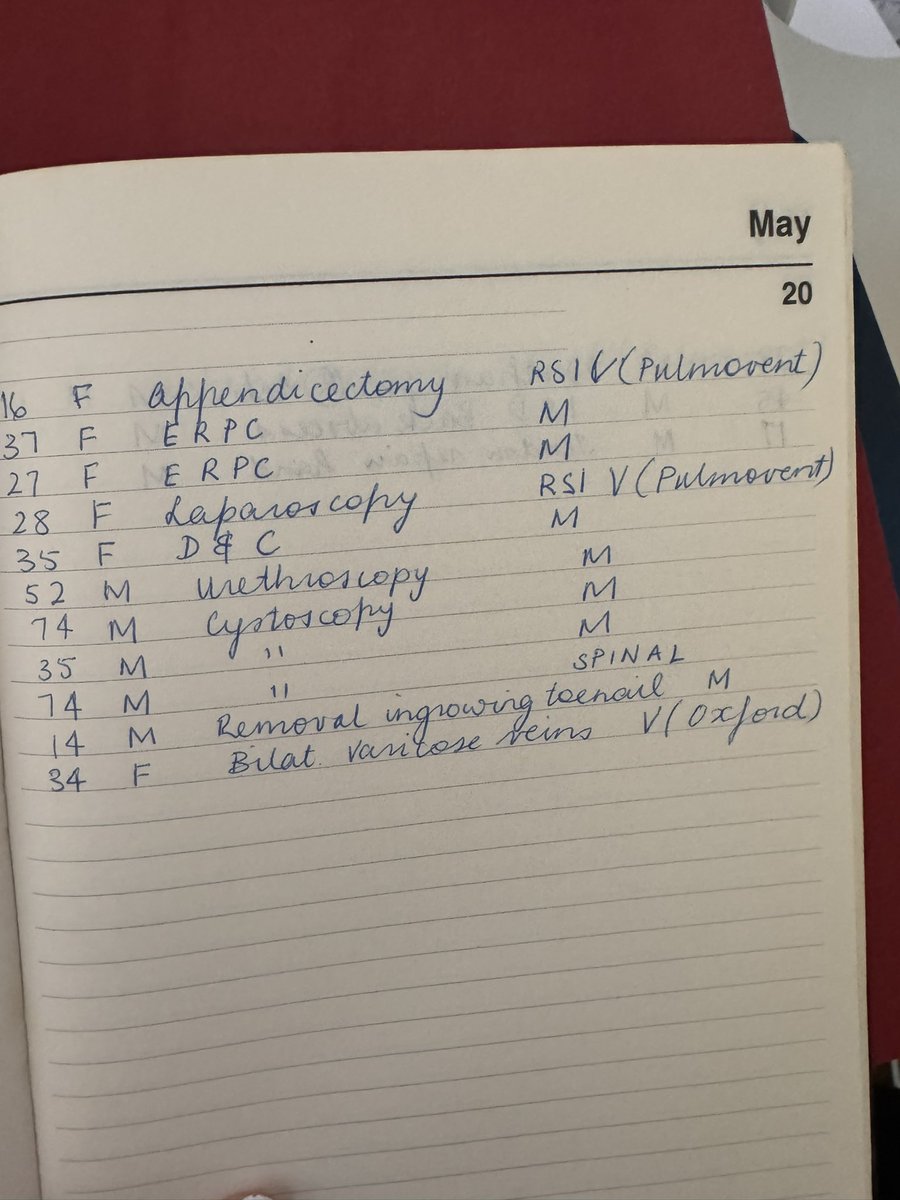 May
20
16 F Appendicectomy RSI V (Pulmovent)
37 F ERPC M
27 F ERPC M
28 F Laparoscopy RSI V (Pulmovent)
35 F D & C M
52 M Urethroscopy M
74 M Cystoscopy M
35 M " M
74 M " SPINAL
14 M Removal ingrowing toenail M
34 F Bilat. varicose veins V (Oxford)